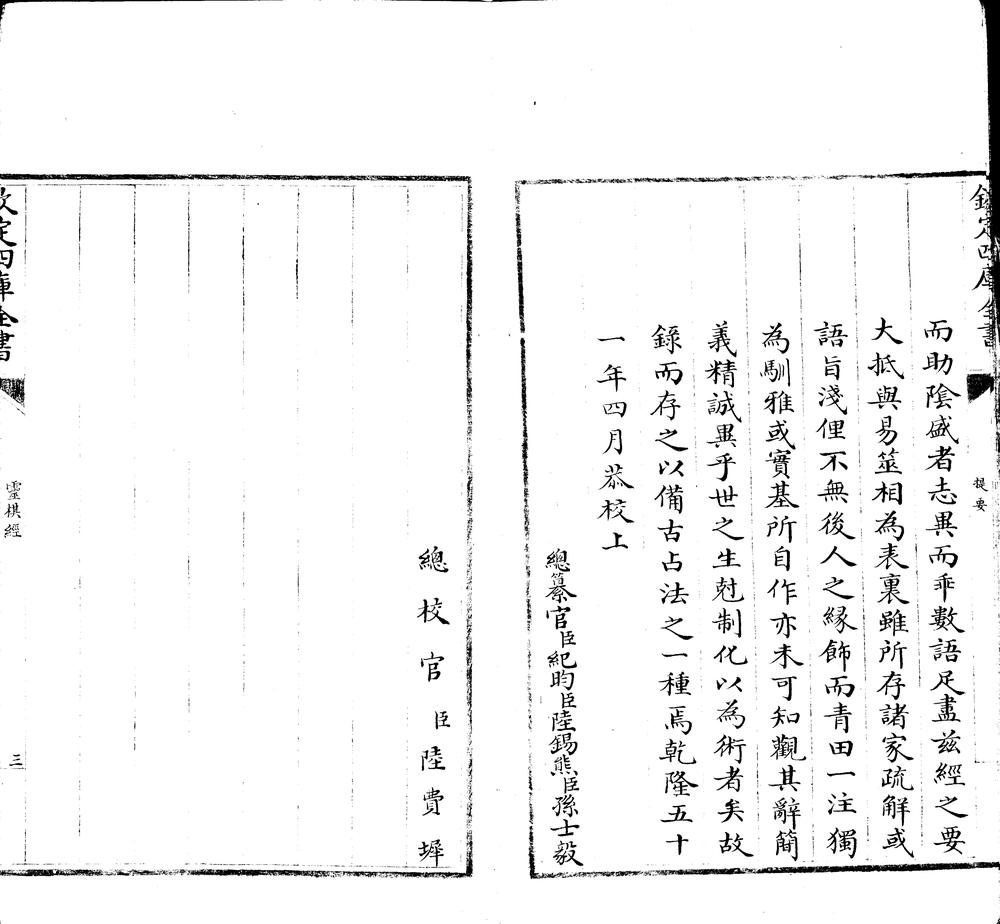 鑑定四庫全書
提要
而助陰盛者志異而乖數語足盡兹經之要
大抵與易筮相為表裏雖所存諸家疏解或
語旨淺俚不無後人之緣飾而青田一注獨
為馴雅或實基所自作亦未可知觀其辭簡
義精誠異乎世之生尅制化以為術者矣故
錄而存之以備古占法之一種焉乾隆五十
一年四月恭校上
總纂官臣紀昀臣陸錫熊臣孫士毅
總校官臣陸費墀
欽定四庫全書
靈棋經
三